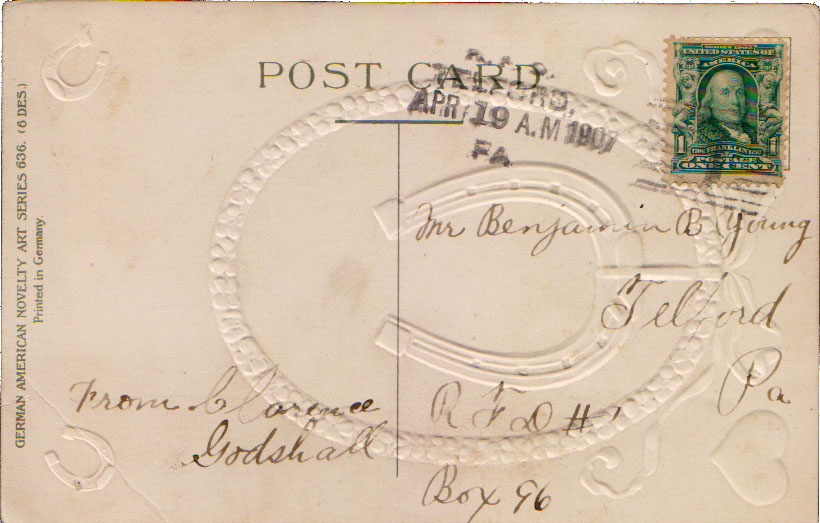 POST CARD
R.F.D.
TELFORD,
APR 19 A.M 1907
PA.
SERIES 1902
UNITED STATES OF
AMERICA
1 1
FRANKLIN
POSTAGE
ONE CENT
GERMAN AMERICAN NOVELTY ART SERIES 636. (6 DES.)
Printed in Germany.
Mr Benjamin B Young
Telford
Pa
R F D # 1
Box 96
From Clarence
Godshall